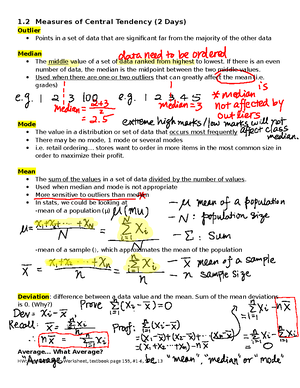 1.2 Measures of Central Tendency (2 Days)
Outlier
• Points in a set of data that are significant far from the majority of the other data
data need to be ordered
Median
• The middle value of a set of data ranked from highest to lowest. If there is an even
number of data, the median is the midpoint between the two middle values.
• Used when there are one or two outliers that can greatly affect the mean (i.e.
grades)
e.g. 1 2 3 100
median = 2+3/2
= 2.5
e.g. 1 2 3 4 5
median = 3
* median is
not affected by
outliers
extreme high marks/low marks will not
affect class
median.
Mode
• The value in a distribution or set of data that occurs most frequently
• There may be no mode, 1 mode or several modes
• i.e. retail ordering... stores want to order in more items in the most common size in
order to maximize their profit.
Mean
• The sum of the values in a set of data divided by the number of values.
• Used when median and mode is not appropriate
• More sensitive to outliers than median
• In stats, we could be looking at
-mean of a population (μ) μ (mu)
μ = x₁+x₂+...+x_N / N = Σxᵢ / N
— μ mean of a population
— N : population size
— Σ : Sum
-mean of a sample (), which approximates the mean of the population
x̄ = x₁+x₂+...+xₙ / n = Σxᵢ / n
— x̄ mean of a sample
— n sample size
Deviation: difference between a data value and the mean. Sum of the mean deviations
is 0. (Why?)
Dev = xᵢ - x̄
Prove Σ(xᵢ - x̄) = 0
Recall: x̄ = Σxᵢ / n
n x̄ = Σxᵢ
Proof: Σ(xᵢ - x̄)
= 0
Average... What Average?
"Average" can be "mean", "median" or "mode"